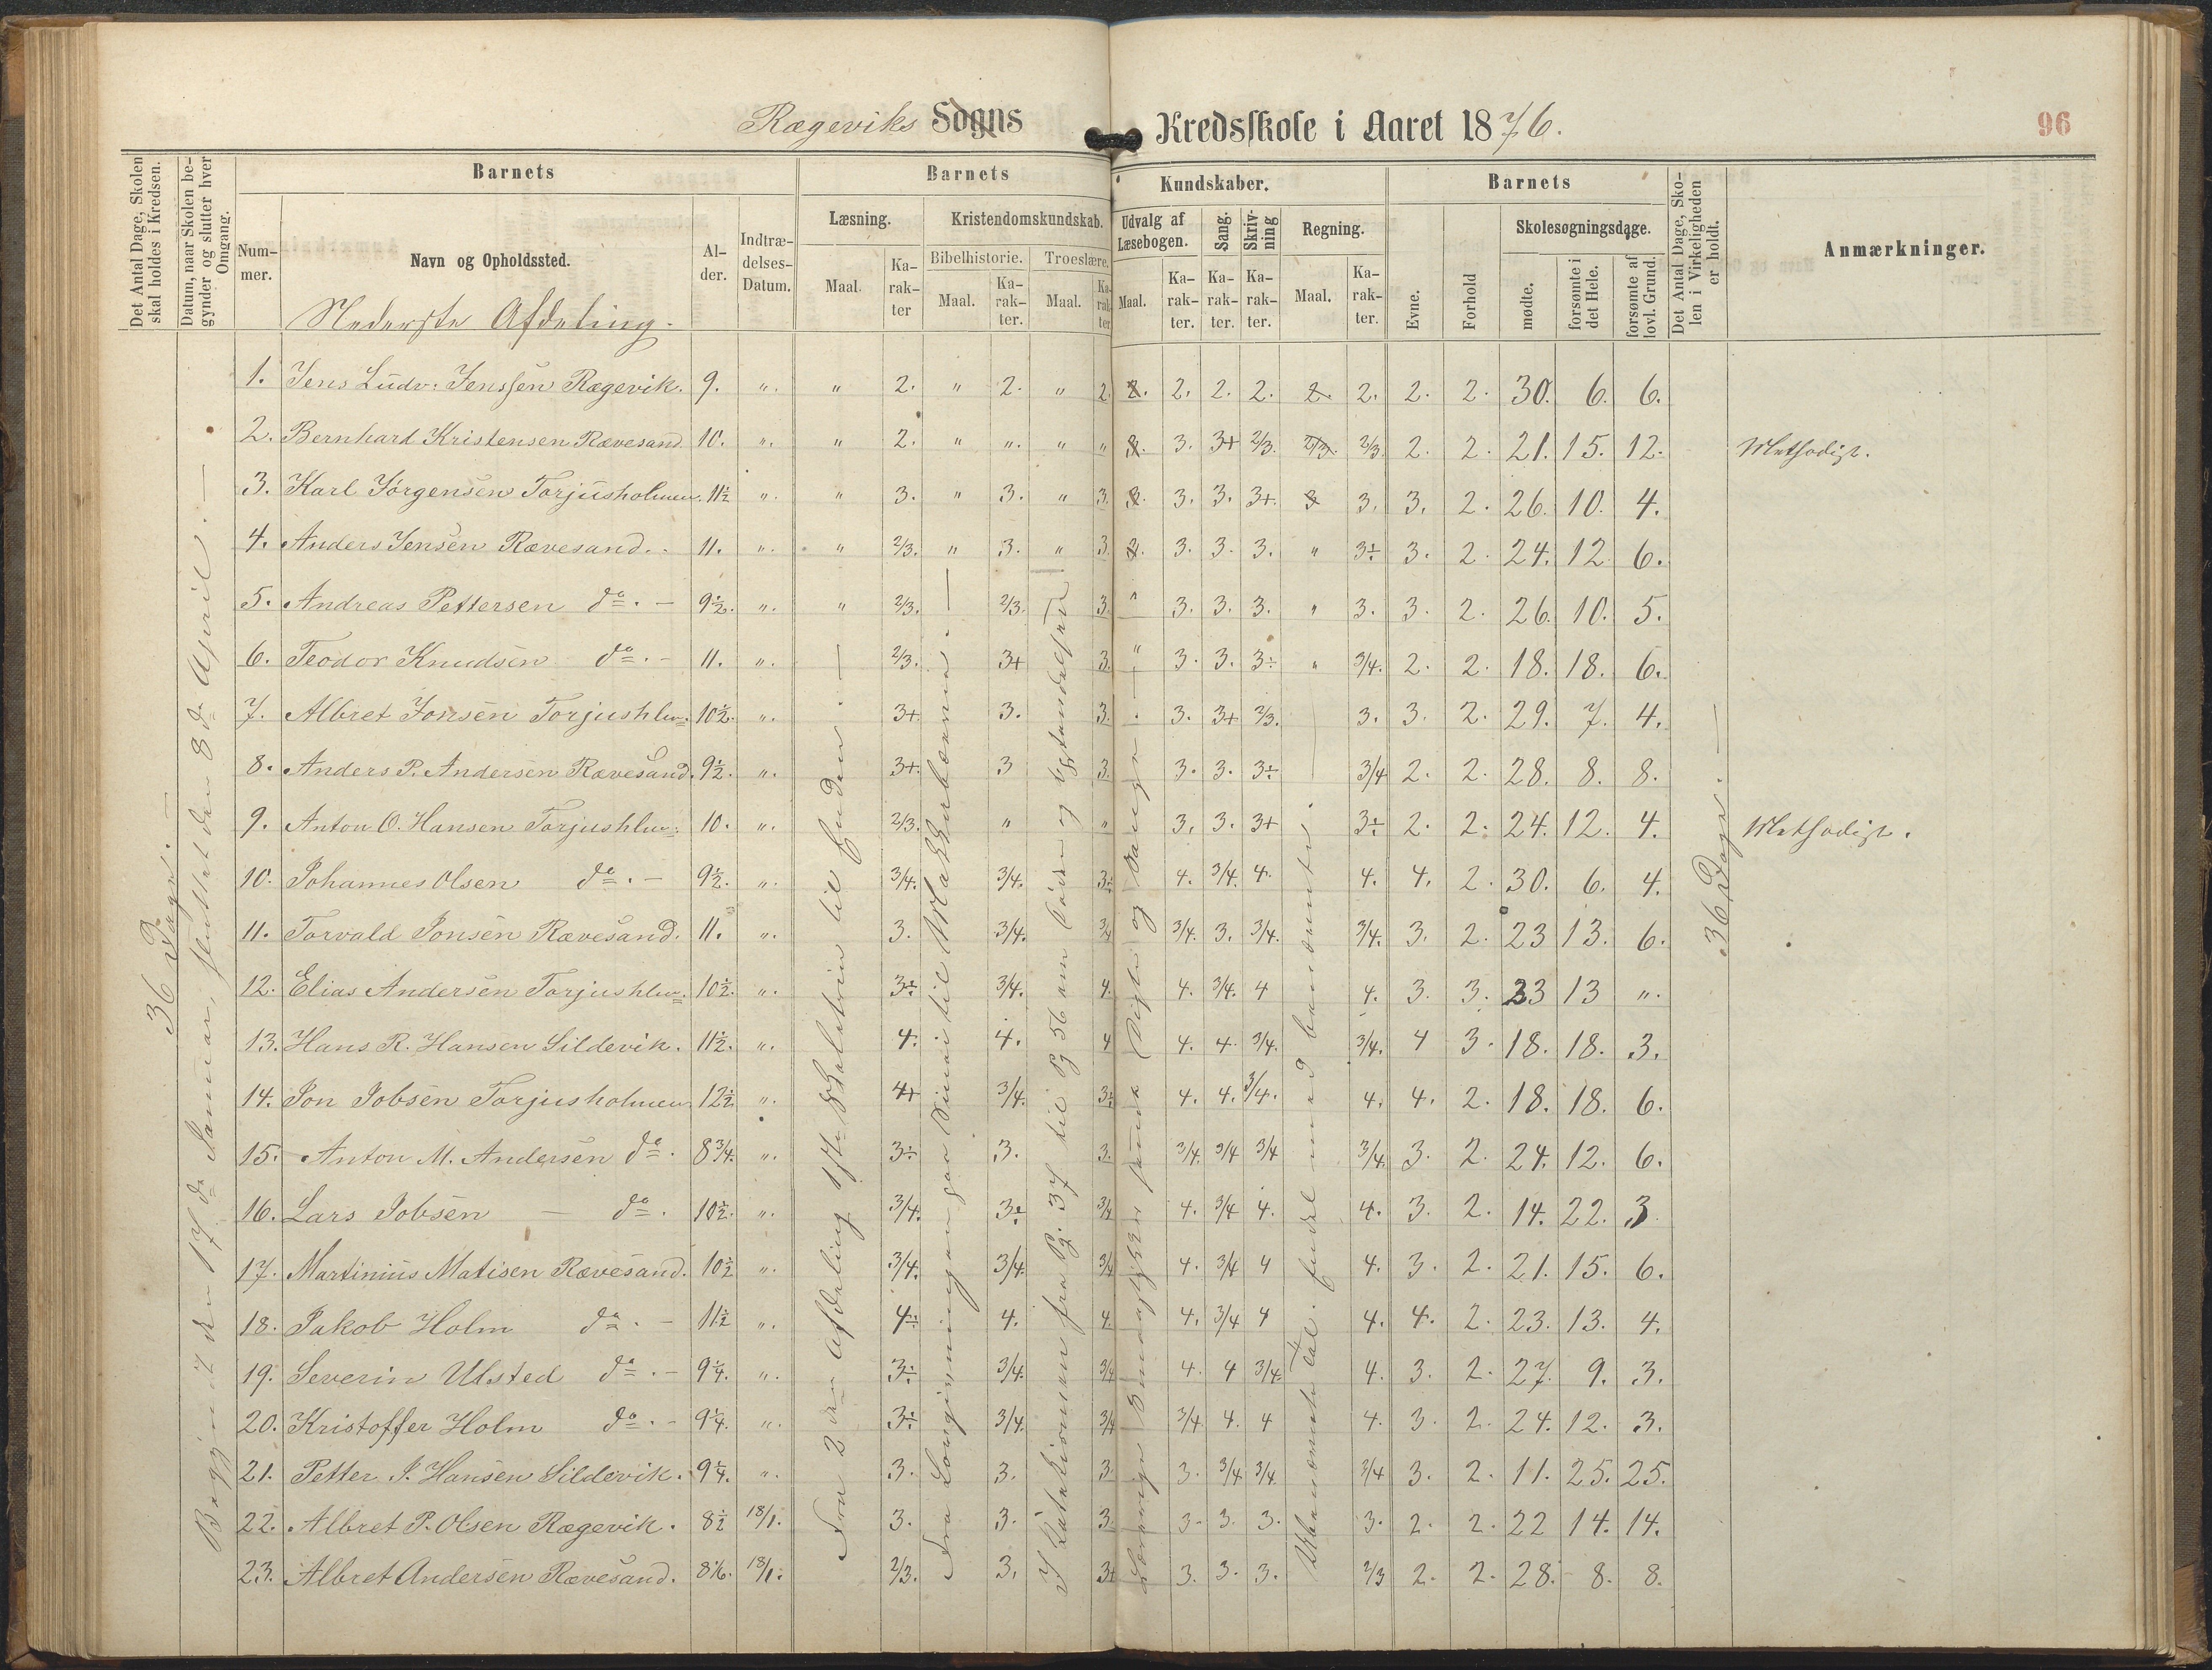 Rægeviks Sogns Kredsskole i Aaret 1876.
96
Det Antal Dage, Skolen skal holdes i Kredsen.
Datum, naar Skolen begynder og slutter hver Omgang.
Barnets
Nummer.
Navn og Opholdssted.
Alder.
Indtrædelses-Datum.
Barnets Kundskaber.
Læsning.
Maal.
Karakter
Kristendomskundskab.
Bibelhistorie.
Maal.
Karakter.
Troeslære.
Maal.
Karakter
Udvalg af Læsebogen.
Maal.
Karakter.
Sang.
Karakter.
Skrivning
Karakter.
Regning.
Maal.
Karakter.
Barnets
Evne.
Forhold
Skolesøgningsdage.
mødte.
forsømte i det Hele.
forsømte af lovl. Grund.
Det Antal Dage, Skolen i Virkeligheden er holdt.
Anmærkninger.
Nederste Afdeling.
36 Dage.
Begyndt den 17de Januar, sluttet den 8de April.
1. Jens Ludv: Jenssen Rægevik. 9. " " 2. " 2. " 2. 2. 2. 2. 2. 2. 2. 2. 2. 30. 6. 6.
2. Bernhard Kristensen Rævesand. 10. " " 2. " " " " 3. 3. 3+ 2/3. 2/3. 2/3. 2. 2. 21. 15. 12. Methodist.
3. Karl Jörgensen Torjusholmen. 11½ " " 3. " 3. " 3. 3. 3. 3. 3+. 3 3. 3. 2. 26. 10. 4.
4. Anders Jensen Rævesand. 11. " " 2/3. " 3. " 3. 2. 3. 3. 3. " 3÷ 3. 2. 24. 12. 6.
5. Andreas Pettersen do. 9½. " " 2/3. 2/3. 3. " 3. 3. 3. " 3. 3. 2. 26. 10. 5.
6. Teodor Knudsen do. 11. " 2/3. 3+ 3. " 3. 3. 3÷ " 3/4. 2. 2. 18. 18. 6.
7. Albret Jonsen Torjushlm. 10½. " 3+ 3. 3. 3. 3+ 2/3. 3. 3. 2. 29. 7. 4.
8. Anders P. Andersen Rævesand. 9½. " 3+. 3 3. 3. 3. 3÷ 3/4 2. 2. 28. 8. 8.
9. Anton O. Hansen Torjushlm. 10. " 2/3. " " 3. 3. 3+ 3÷ 2. 2. 24. 12. 4. Methodist.
10. Johannes Olsen do. 9½. " 3/4. 3/4. 3÷ 4. 3/4. 4. 4. 4. 2. 30. 6. 4.
11. Torvald Jonsen Rævesand. 11. " 3. 3/4. 3/4 3/4. 3. 3/4. 3/4. 3. 2. 23 13. 6.
12. Elias Andersen Torjushlm. 10½. " 3÷ 3/4. 4. 4. 3/4. 4 4. 3. 3. 23 13 ".
13. Hans R. Hansen Sildevik. 11½. " 4. 4. 4 4. 4. 3/4. 3/4. 4 3. 18. 18. 3.
14. Jon Jobsen Torjusholmen 12½ " 4+ 3/4. 3÷ 4. 4. 3/4. 4. 4. 2. 18. 18. 6.
15. Anton M. Andersen do. 8¾. " 3÷ 3. 3. 3/4. 3/4 3/4 3/4. 3. 2. 24. 12. 6.
16. Lars Jobsen do. 10½. " 3/4. 3÷ 3/4 4. 3/4 4. 4. 3. 2. 14. 22. 3.
17. Martinius Matisen Rævesand. 10½ " 3/4. 3/4 3/4 4. 3/4 4 4. 3. 2. 21. 15. 6.
18. Jakob Holm do. 11½ " 4÷ 4. 4. 4. 3/4 4 4. 4. 2. 23. 13. 4.
19. Severin Ulsted do. 9¼. " 3÷ 3/4. 3/4 4. 4 3/4. 4. 3. 2. 27. 9. 3.
20. Kristoffer Holm do. 9¼. " 3÷ 3/4. 3/4 3/4 4. 4 4. 3. 2. 24. 12. 3.
21. Petter J. Hansen Sildevik. 9¼. " 3. 3. 3. 3. 3/4 3/4 3/4 3. 2. 11. 25. 25.
22. Albret P. Olsen Rægevik. 8½ 18/1. 3. 3. 3. 3. 3. 3. 3. 2. 2. 22 14. 14.
23. Albret Andersen Rævesand. 8 1/6. 18/1. 2/3. 3. 3+ 3. 3. 3. 2/3 2. 2. 28. 8. 8.
Fra 2den Afdeling 1ste til Enden.
Fra Lovgivningen paa Sinai til Makkabæerne.
I Katekismen fra Pg. 37 til Pg 56
og Sange
36 Dage.